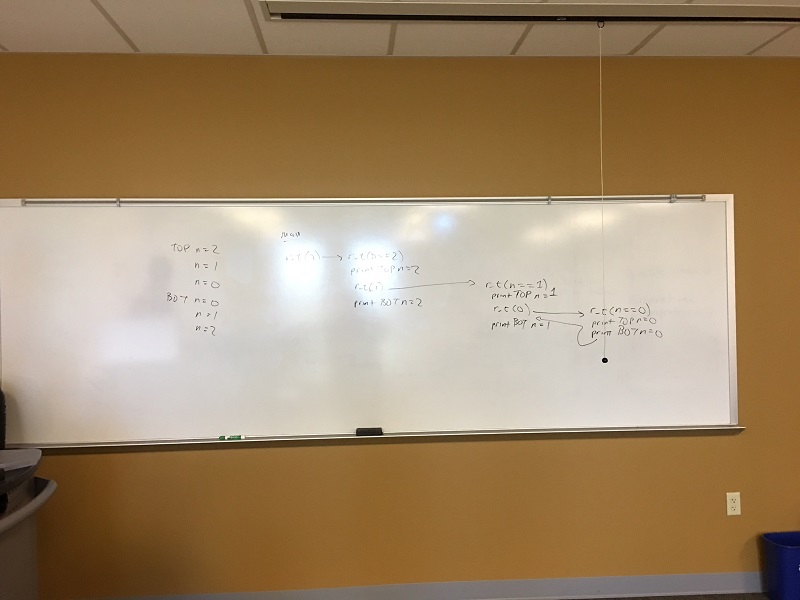 TOP n=2
n=1
n=0
BOT n=0
n=1
n=2
main
r_t(n==2)
print TOP n=2
print BOT n=2
r_t(n==1)
print TOP n=1
r_t(0)
print BOT n=1
r_t(n==0)
print TOP n=0
print BOT n=0